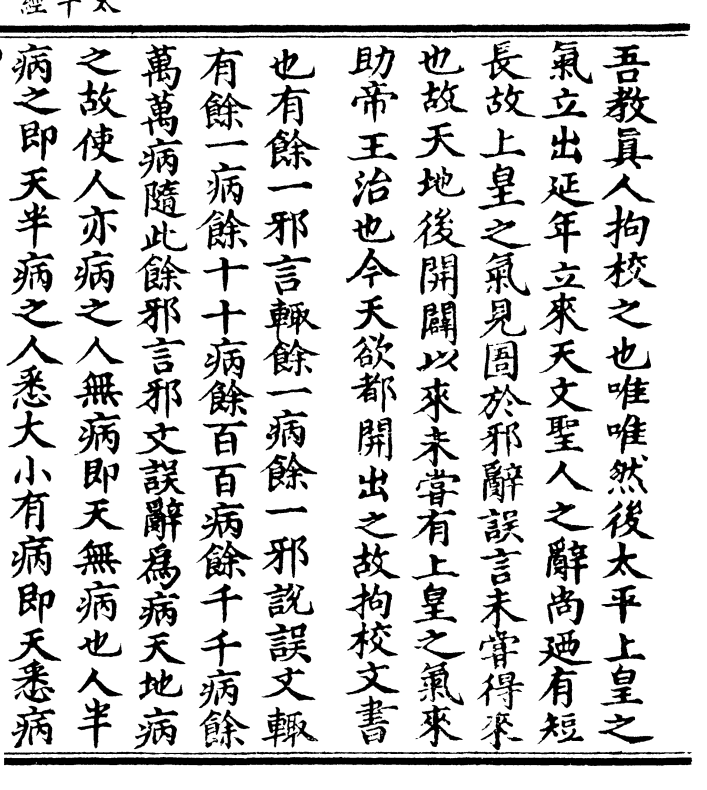 吾教眞人拘校之也唯唯然後太平上皇之
氣立出延年立來天文聖人之辭尚廼有短
長故上皇之氣見圄於邪辭誤言未甞得來
也故天地後開闢以來未甞有上皇之氣來
助帝王治也今天欲都開出之故拘校文書
也有餘一邪言輙餘一病餘一邪說誤文輙
有餘一病餘十十病餘百百病餘千千病餘
萬萬病隨此餘邪言邪文誤辭爲病天地病
之故使人亦病之人無病即天無病也人半
病之即天半病之人悉大小有病即天悉病